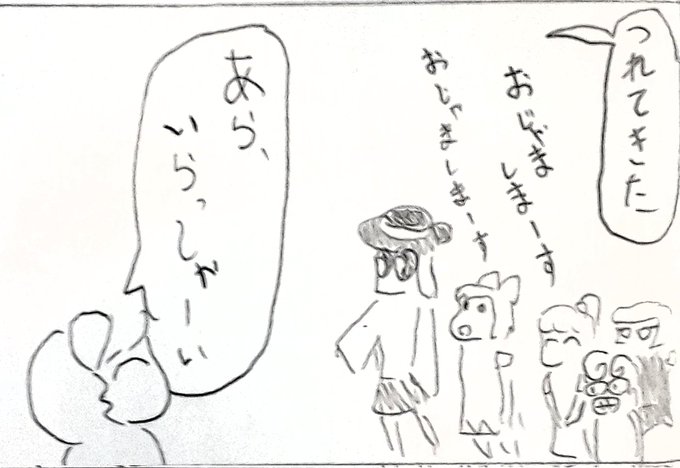 つれてきた
おじゃま
しまーす
おじゃましまーす
あら、
いらっしゃーい